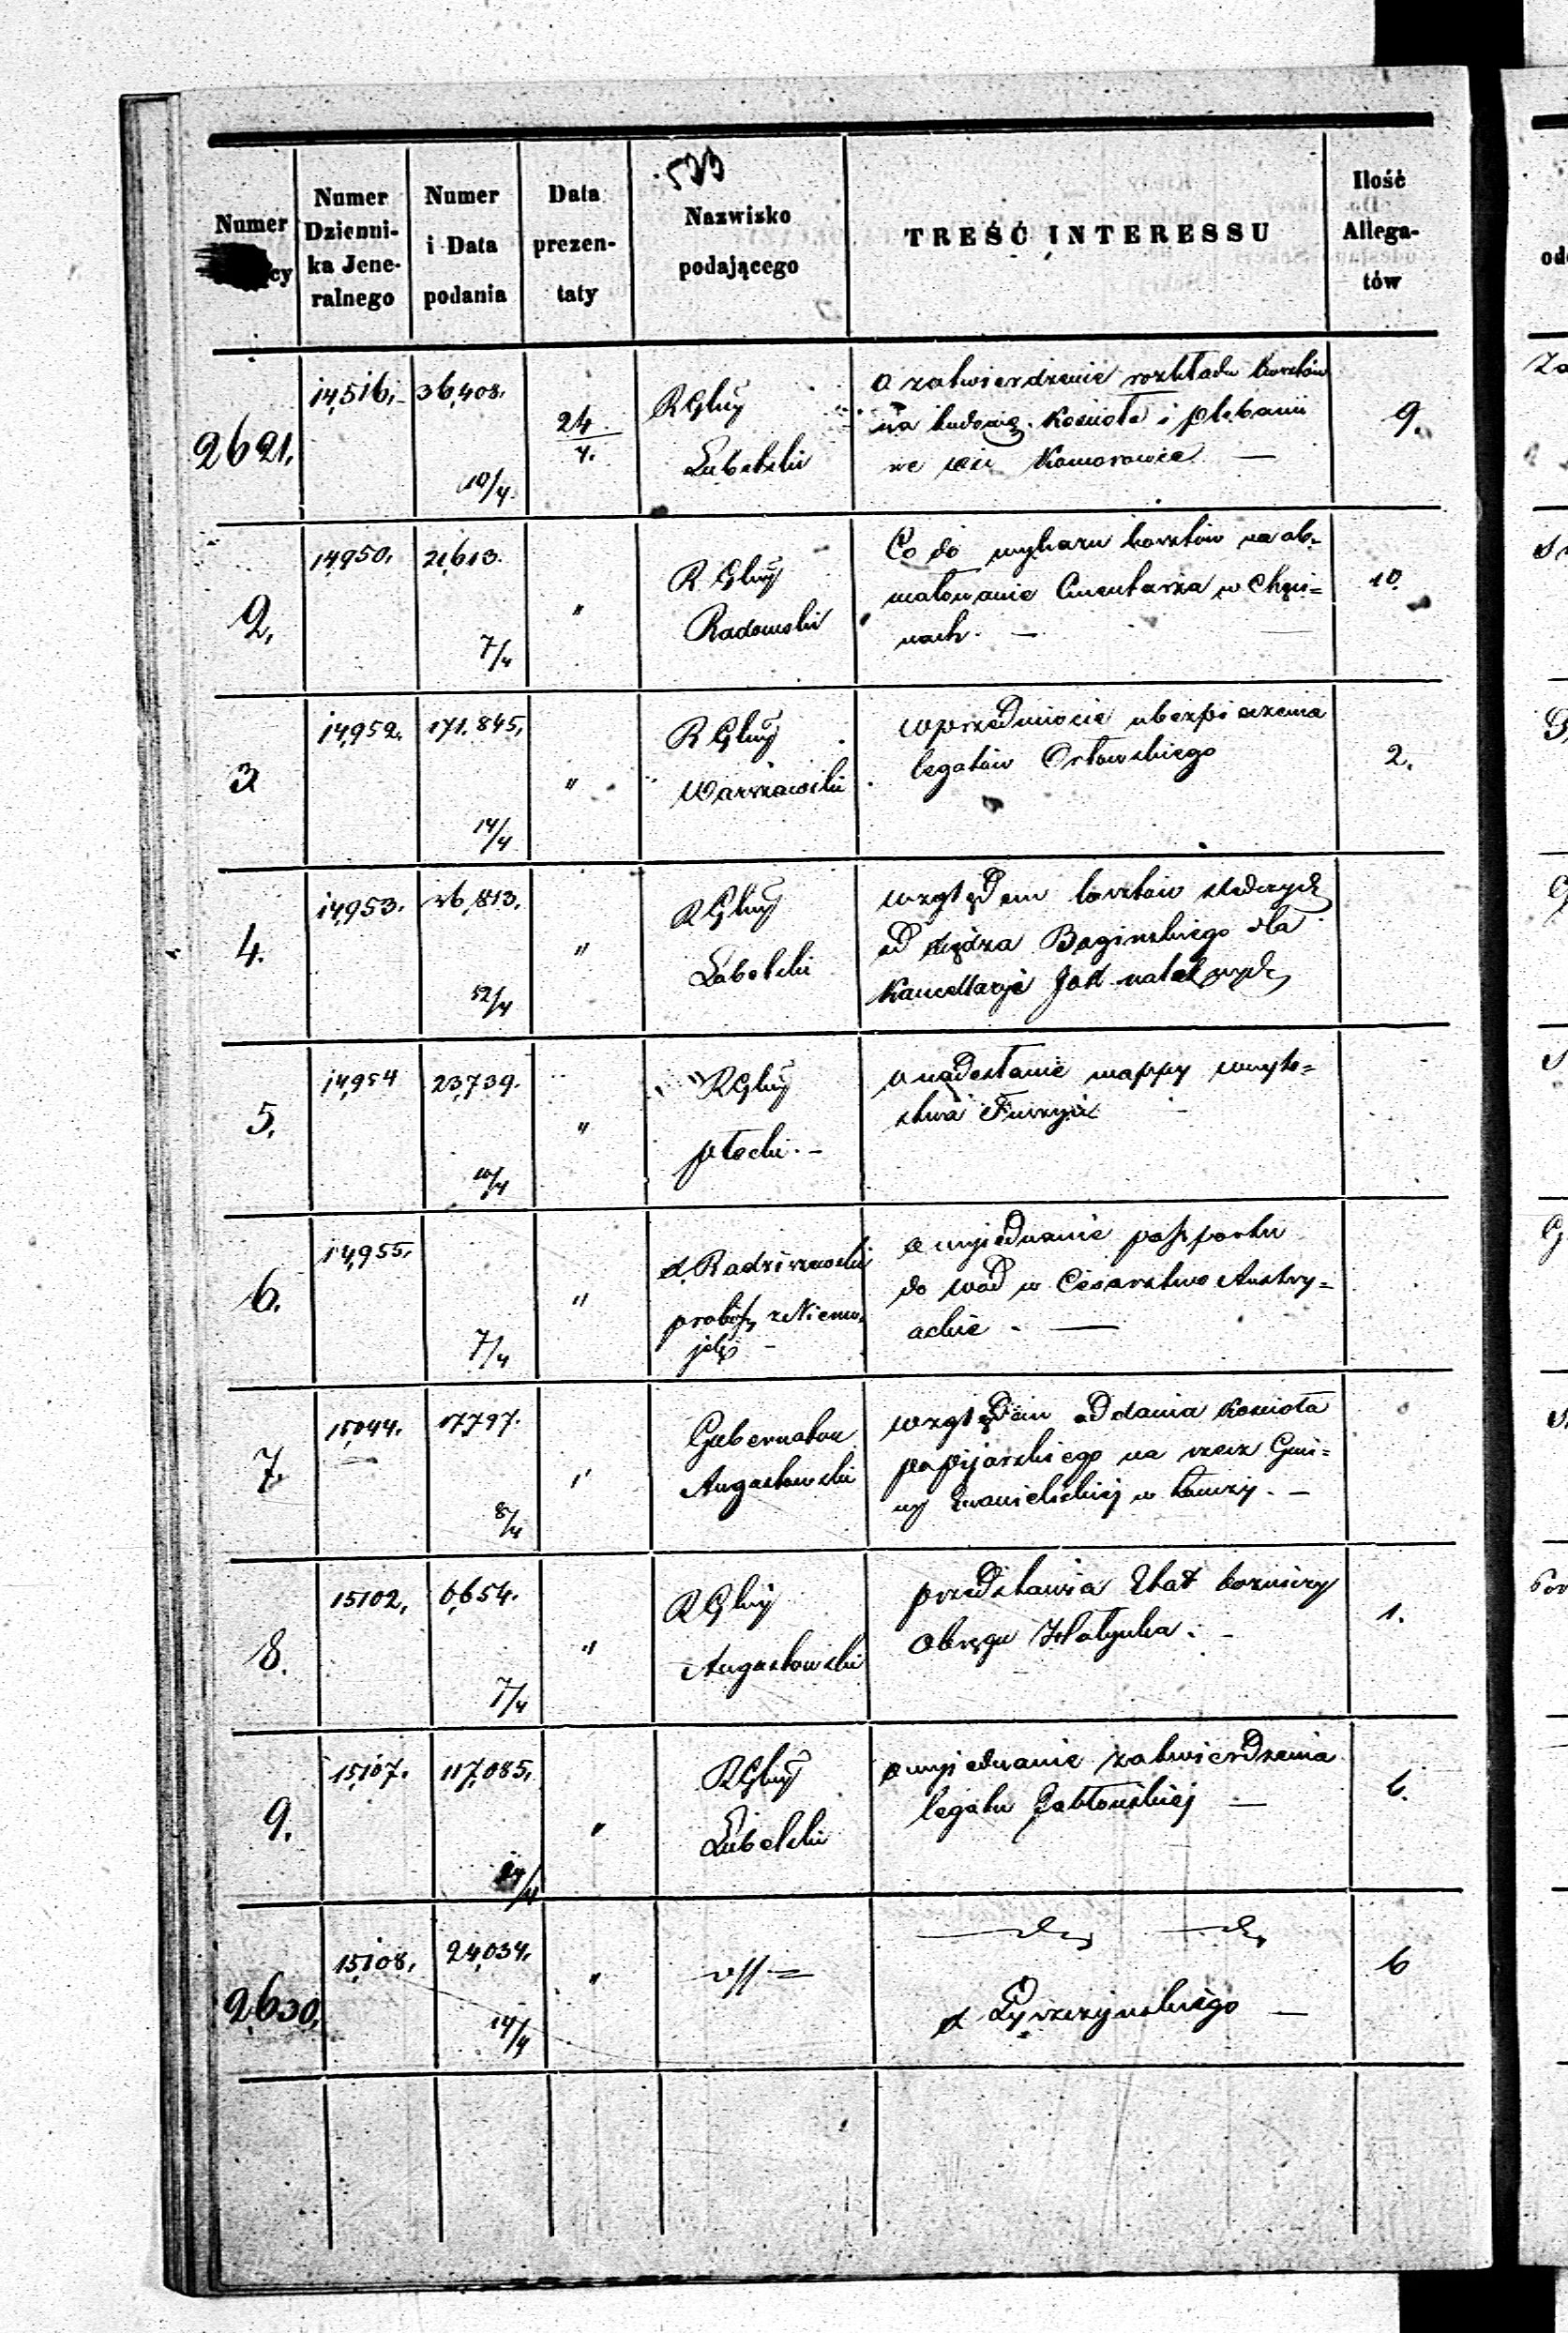 Numer
cy
Numer
Dzienni-
ka Jene-
ralnego
Numer
i Data
podania
Data
prezen-
taty
Nazwisko
podającego
TREŚĆ INTERESSU
Ilość
Allega-
tów
2621.
14,516.
36,408.
10/4.
24/4.
RGlny
Lubelski
o zatwierdzenie rozkładu kosztów
na budowię Kościoła i plebanii
we wsi Komorowie —
9.
2.
14,950.
21,613.
7/4
"
RGlny
Radomski
Co do wykazu kosztów na ob-
malowanie Cmentarza w Chęci=
nach. —
10.
3
14,952.
171.845.
14/4
"
RGlny
Warszawski
w przedmiocie ubezpieczenia
legatów Orłowskiego
2.
4.
14,953.
26,813.
12/4
"
RGlny
Lubelski
względem kosztów
od księdza Baginskiego dla
Kancellaryi
5.
14,954
23,739.
10/4
"
RGlny
płocki. —
o nadesłanie mappy
6.
14,955.
7/4
"
X. Radziszewski
probosz z Niemo-
o wyjednanie paszportu
do wód w Cesarstwo Austry=
ackie. —
7.
15,044.
17,797.
8/4
"
Gubernator
Augustowski
względem oddania Kościoła
popijarskiego na rzecz Gmi=
ny Ewanielickiej w Łomży. —
8.
15,102.
6,654.
7/4
"
RGlny
Augustowski
przedstawia Etat bożniczy
Okręgu
1.
9.
15,107.
117,085.
14/4
"
RGlny
Lubelski
o wyjednanie zatwierdzenia
legatu Jabłońskiej —
6.
2630.
15,108.
24,034.
14/4
"
6